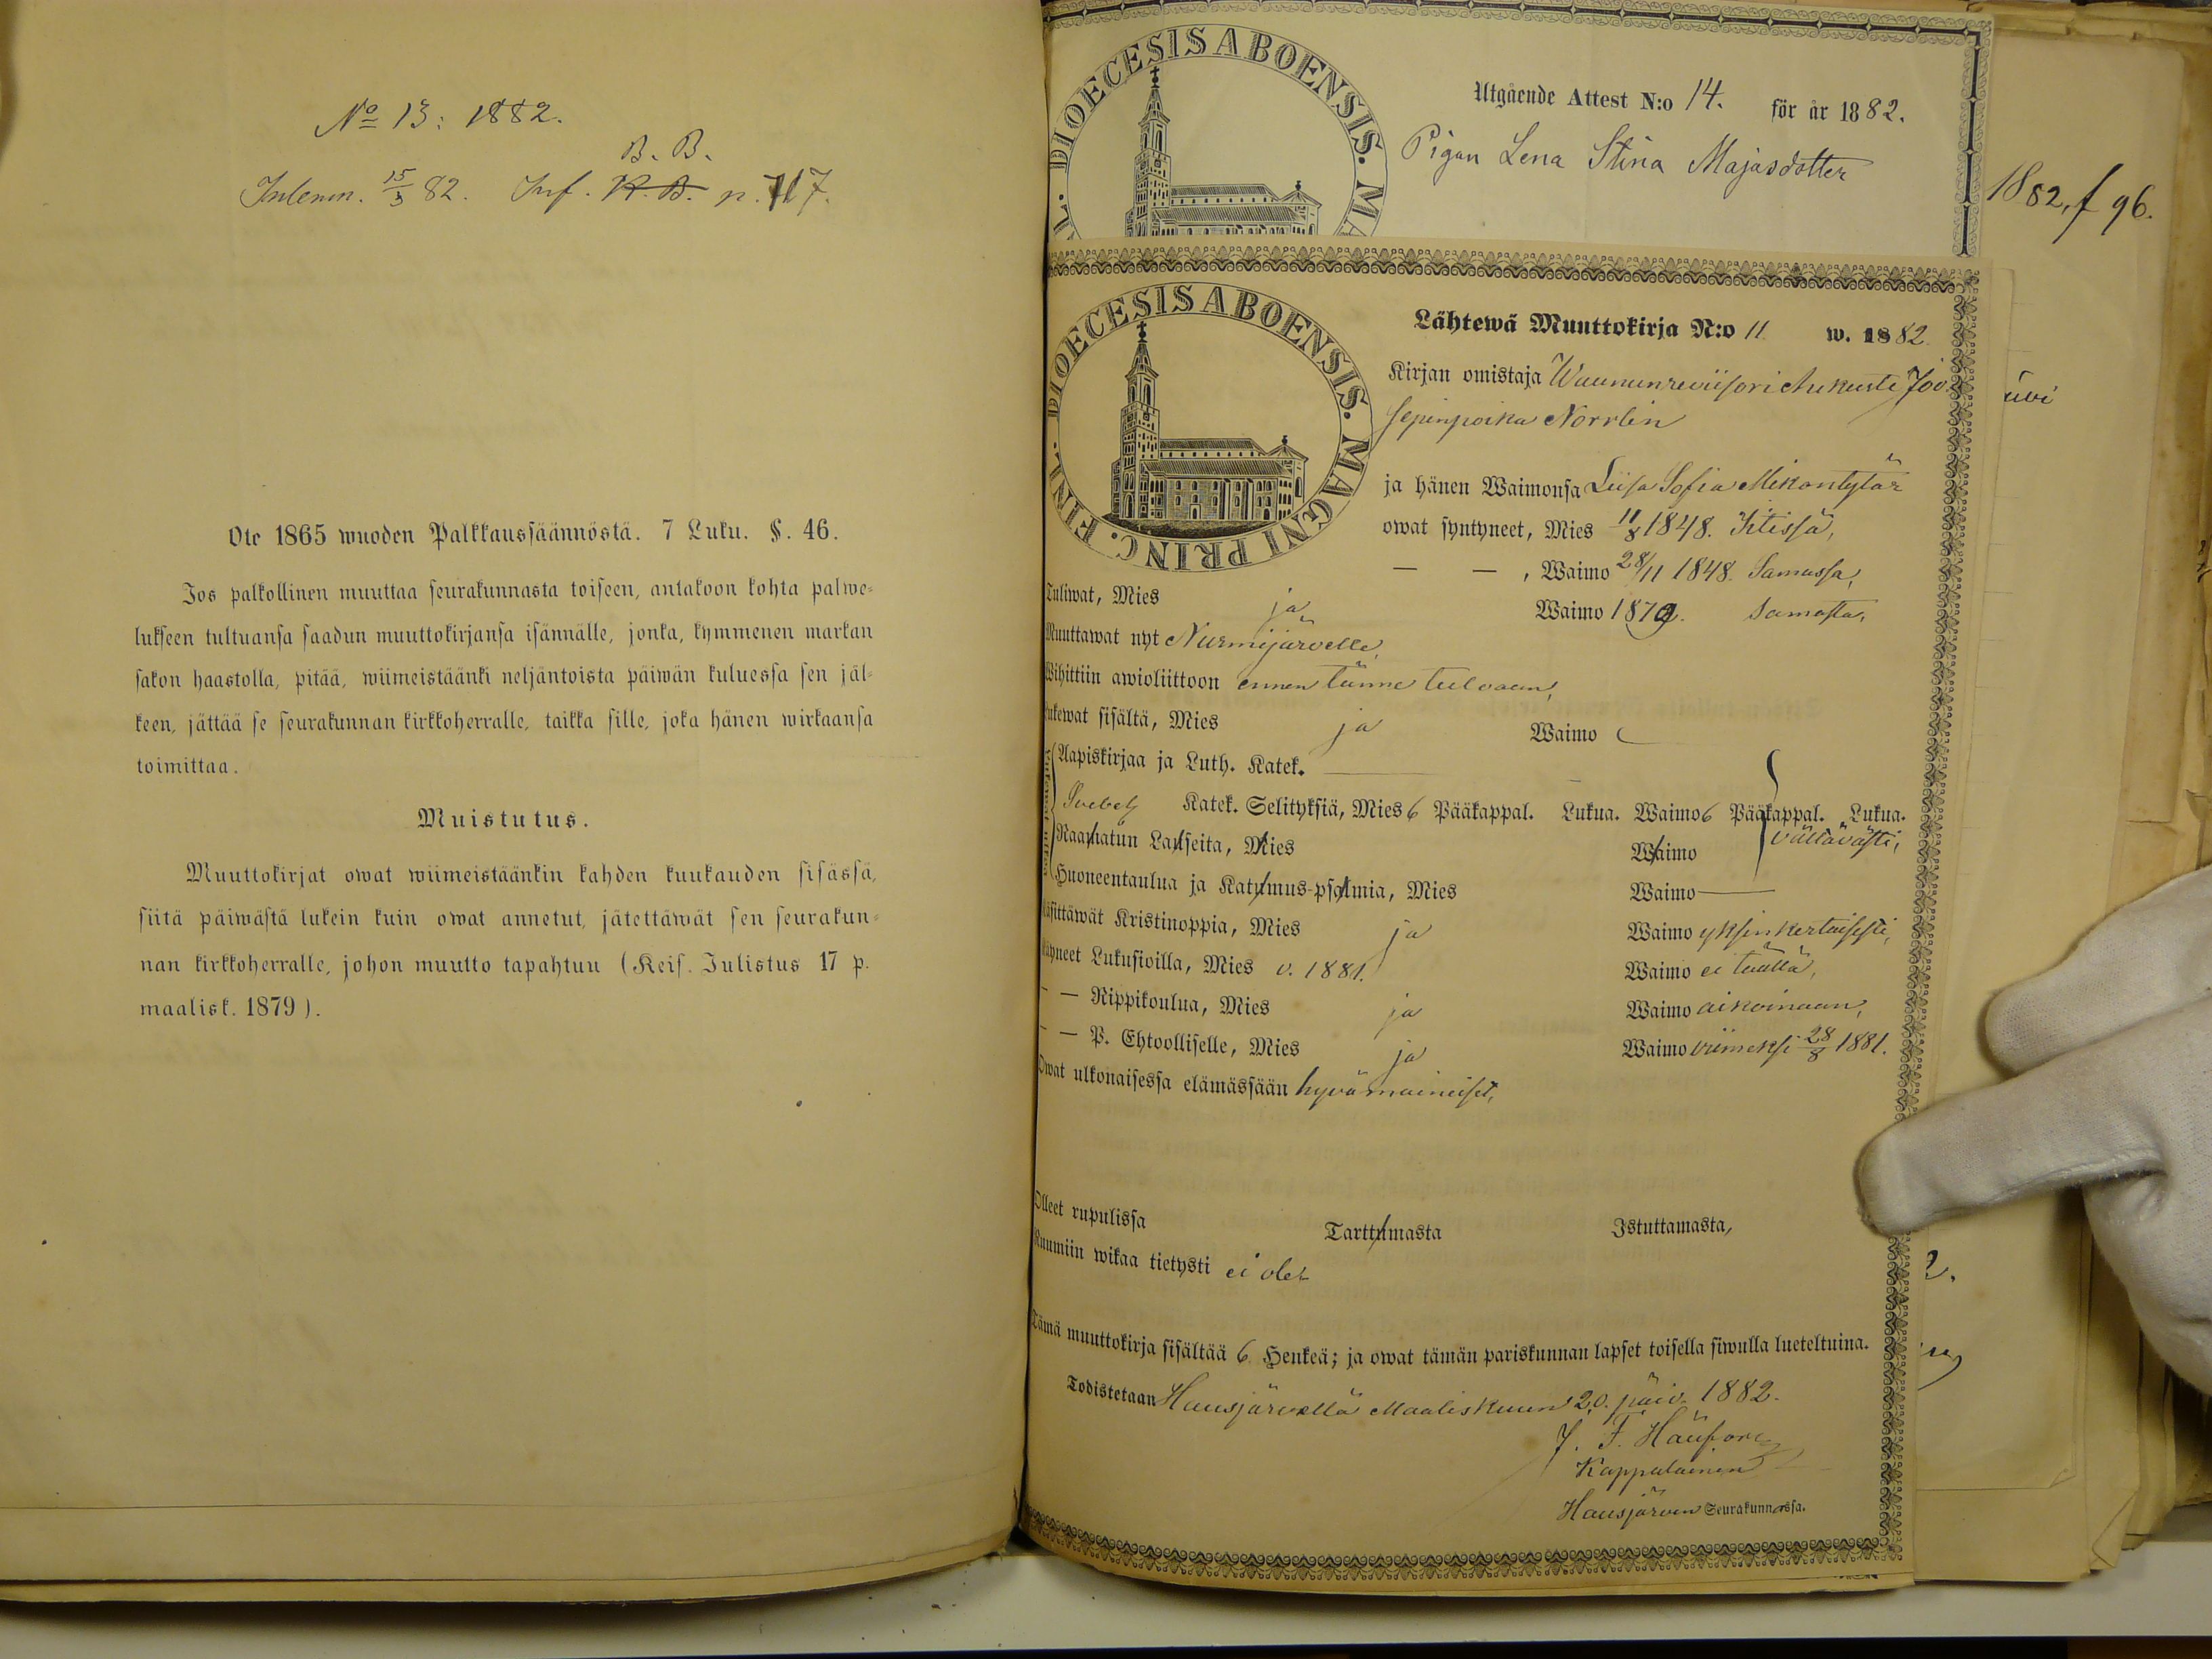 No 13: 1882.
B. B.
Inlemn. 15/3 82. Inf. K. B. p. 717.
Ote 1865 wuoden Palkkaussäännöstä. 7 Luku. §. 46.
Jos palkollinen muuttaa seurakunnasta toiseen, antakoon kohta palwe-
lukseen tultuansa saadun muuttokirjansa isännälle, jonka, kymmenen markan
sakon haastolla, pitää, wiimeistäänki neljäntoista päiwän kuluessa sen jäl-
keen, jättää se seurakunnan kirkkoherralle, taikka sille, joka hänen wirkaansa
toimittaa.
Muistutus.
Muuttokirjat owat wiimeistäänkin kahden kuukauden sisässä,
siitä päiwästä lukein kuin owat annetut, jätettäwät sen seurakun-
nan kirkkoherralle, johon muutto tapahtuu (Keis. Julistus 17 p.
maalisk. 1879).
DIOECESIS ABOENSIS. MA
Utgående Attest N:o 14. för år 1882.
Pigan Lena Stina Majasdotter
1882, f 96.
DIOECESIS ABOENSIS. MAGNI PRINC. FINL.
Lähtewä Muuttokirja N:o 11 w. 1882.
Kirjan omistaja Waununreviisori Aukusti Joo
sepinpoika Norrlin
ja hänen Waimonsa Liisa Sofia Mikontytär
owat syntyneet, Mies 11/8 1848. Iitissä,
— — , Waimo 28/11 1848. Samassa,
Tuliwat, Mies ja Waimo 1879. Samasta,
Muuttawat nyt Nurmijärvelle,
Wihittiin awioliittoon ennen tänne tuloaan,
Lukewat sisältä, Mies ja Waimo
Aapiskirjaa ja Luth. Katek.
Svebel. Katek. Selityksiä, Mies 6 Pääkappal. Lukua. Waimo 6 Pääkappal. Lukua.
Raamatun Lauseita, Mies Waimo välttävästi,
Huoneentaulua ja Katumus-psalmia, Mies Waimo
Käsittäwät Kristinoppia, Mies ja Waimo yksinkertaisesti,
Käyneet Lukusioilla, Mies v. 1881. Waimo ei täällä,
— — Rippikoulua, Mies ja Waimo aikoinaan,
— — P. Ehtoolliselle, Mies ja Waimo viimeksi 28/8 1881.
Owat ulkonaisessa elämässään hyvämaineiset,
Olleet rupulissa Tarttumasta Istuttamasta,
Ruumiin wikaa tietysti ei ole
Tämä muuttokirja sisältää 6 Henkeä; ja owat tämän pariskunnan lapset toisella siwulla lueteltuina.
Todistetaan Hausjärvellä Maaliskuun 20. päiv. 1882.
Kappalainen
Hausjärven Seurakunnassa.